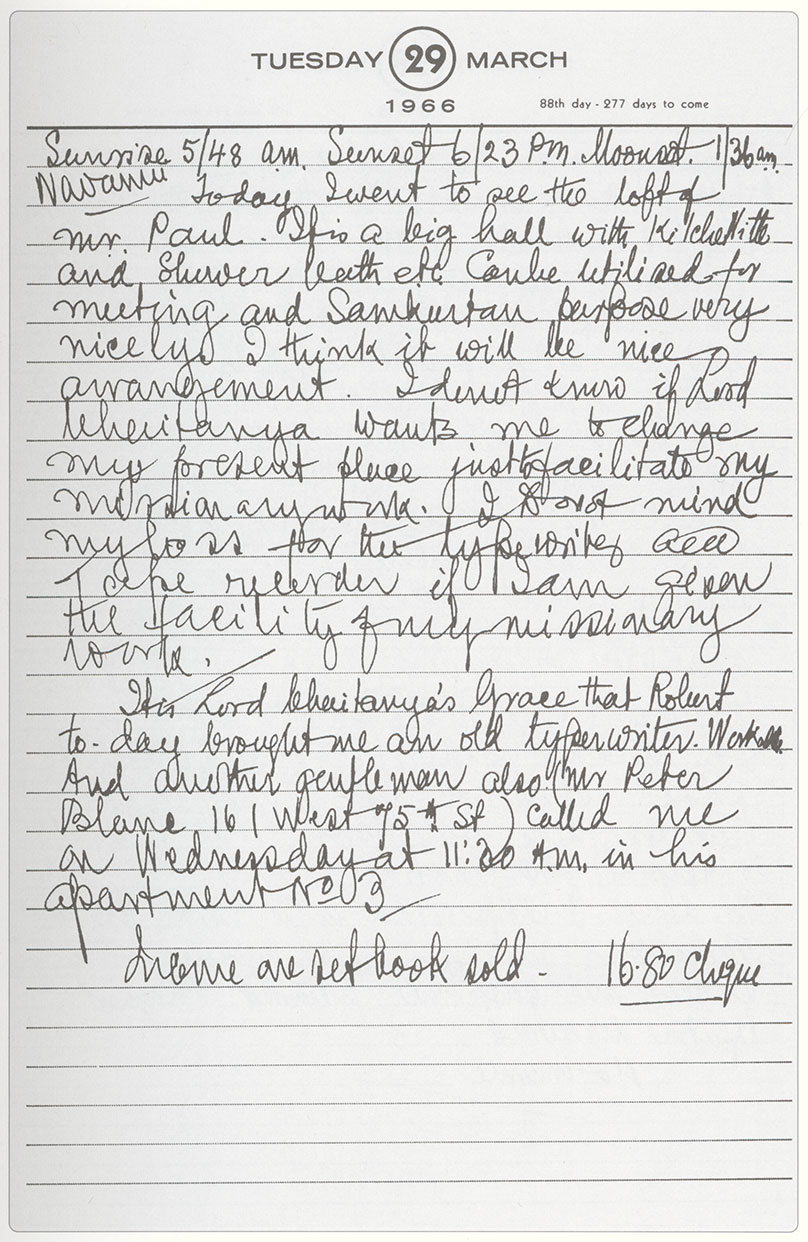 TUESDAY 29 MARCH
1966
88th day - 277 days to come
Sunrise 5/48 am. Sunset 6/23 P.M. Moonset. 1/36 am.
Navami Today I went to see the loft of
mr. Paul. It is a big hall with
and Shower bath etc. Can be utilised for
meeting and Samkirtan purpose very
nicely. I think it will be nice
arrangement. I do not know if Lord
Chaitanya wants me to change
my present place just to facilitate my
missionary work. I do not mind
my loss for the typewriter and
Tape recorder if I am given
the facility of my missionary
work.
It is Lord Chaitanya's Grace that Robert
to-day brought me an old typewriter.
And another gentleman also (mr Peter
16 / West 75th St) called me
on Wednesday at 11:30 A.M. in his
apartment No 3
Income one set book sold - 16.80 cheque